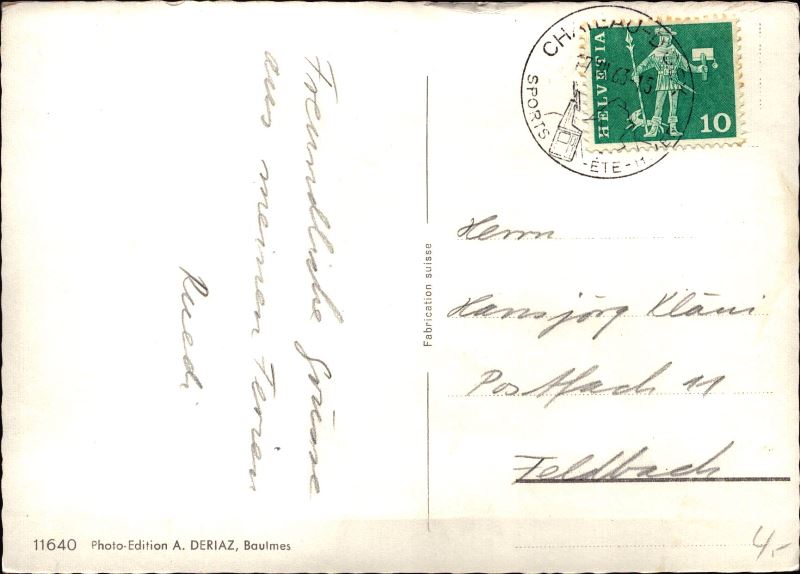 Freundliche Grüsse
aus meinen Ferien
Ruedi
Fabrication suisse
11640 Photo-Edition A. DERIAZ, Baulmes
CHATEAU-D
SPORTS
-ÉTÉ-
HELVETIA
10
Herrn
Hansjörg Kläui
Postfach 11
Feldbach
4.-